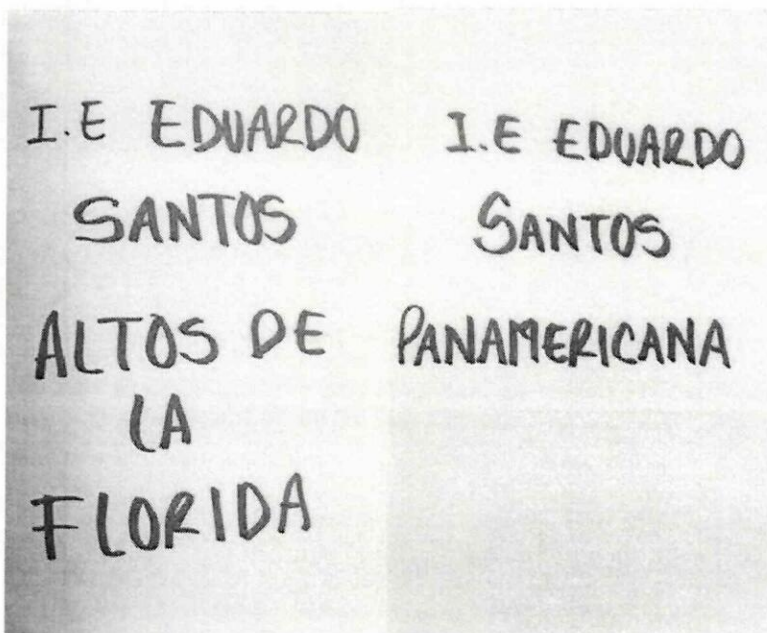 I.E EDUARDO
SANTOS
ALTOS DE
LA
FLORIDA
I.E EDUARDO
SANTOS
PANAMERICANA